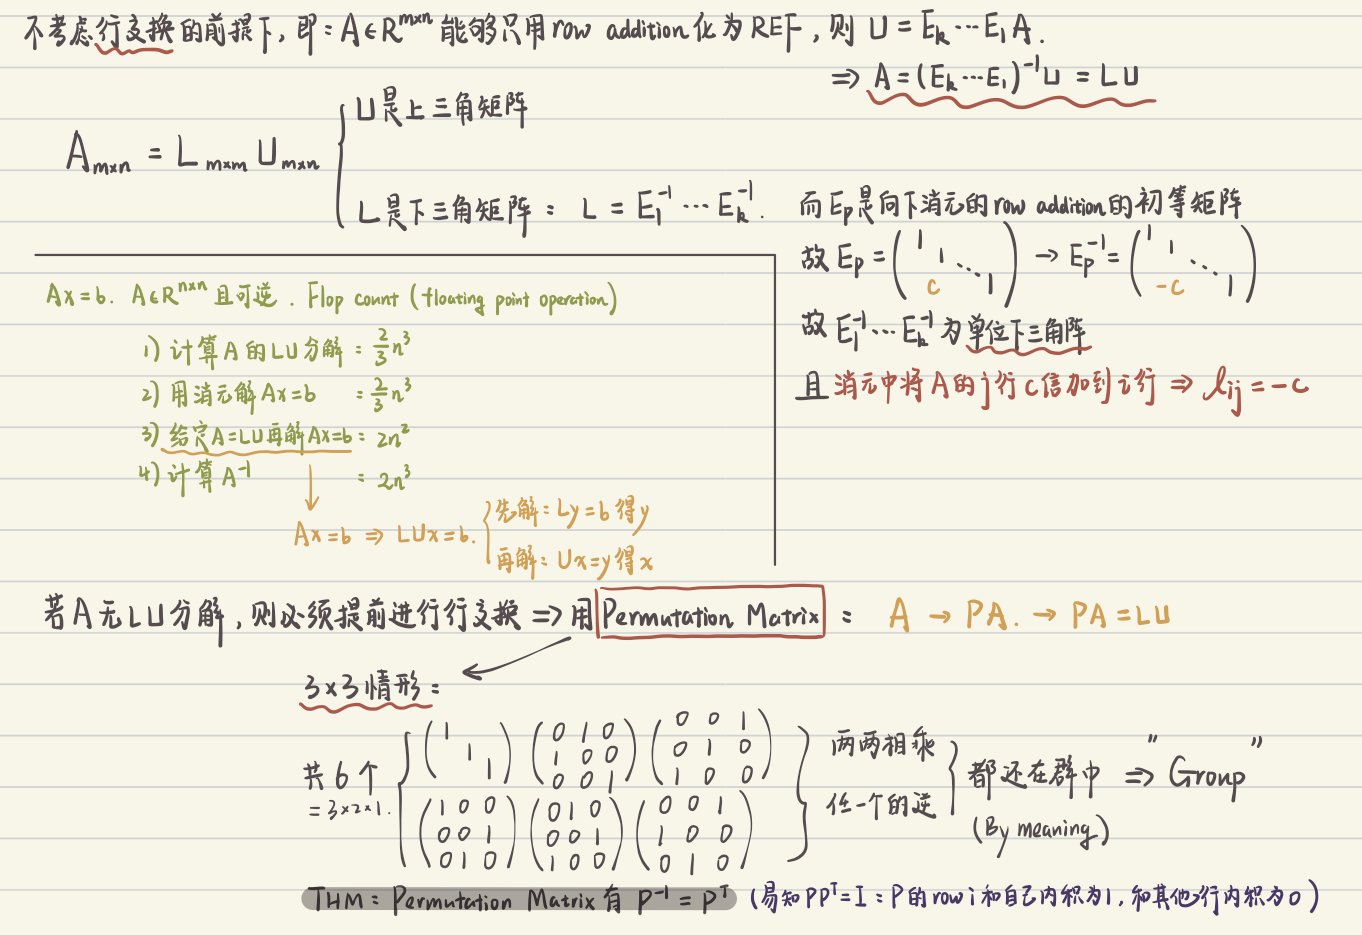 不考虑行交换的前提下, 即: A∈R^{m×n} 能够只用row addition化为REF, 则 U = E_k ⋯ E_1 A.
⇒ A = (E_k ⋯ E_1)^{-1} U = LU
A_{m×n} = L_{m×m} U_{m×n}
U是上三角矩阵
L是下三角矩阵: L = E_1^{-1} ⋯ E_k^{-1}.
而E_p是向下消元的row addition的初等矩阵
故 E_p = (1 1 ⋱ c 1) → E_p^{-1} = (1 1 ⋱ -c 1)
故 E_1^{-1} ⋯ E_k^{-1} 为单位下三角阵
且 消元中将A的j行c倍加到i行 ⇒ l_{ij} = -c
Ax=b. A∈R^{n×n} 且可逆. Flop count (floating point operation)
1) 计算A的LU分解: 2/3 n^3
2) 用消元解 Ax=b : 2/3 n^3
3) 给定A=LU再解Ax=b: 2n^2
4) 计算 A^{-1} : 2n^3
Ax=b ⇒ LUx=b.
先解: Ly=b 得y
再解: Ux=y得x
若A无LU分解, 则必须提前进行行交换 ⇒ 用 Permutation Matrix : A → PA. → PA=LU
3×3情形:
共6个
=3×2×1.
(1 1 1) (0 1 0 / 1 0 0 / 0 0 1) (0 0 1 / 0 1 0 / 1 0 0)
(1 0 0 / 0 0 1 / 0 1 0) (0 1 0 / 0 0 1 / 1 0 0) (0 0 1 / 1 0 0 / 0 1 0)
两两相乘
任一个的逆
都还在群中 ⇒ "Group"
(By meaning)
THM: Permutation Matrix 有 P^{-1} = P^T (易知 PP^T=I: P的row i和自己内积为1, 和其他行内积为0)